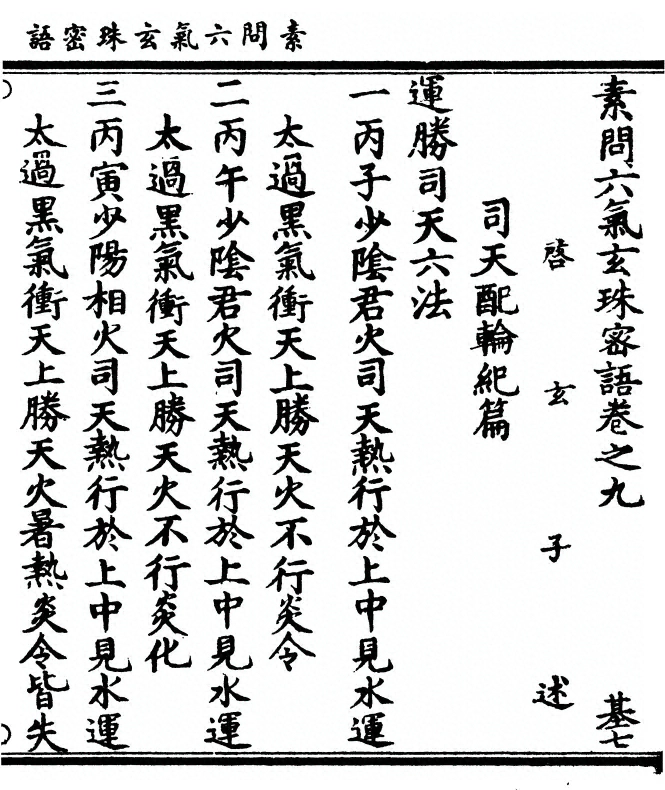 素問六氣玄珠密語
素問六氣玄珠密語卷之九 基七
啓玄子述
司天配輪紀篇
運勝司天六法
一丙子少陰君火司天熱行於上中見水運
太過黑氣衝天上勝天火不行炎令
二丙午少陰君火司天熱行於上中見水運
太過黑氣衝天上勝天火不行炎化
三丙寅少陽相火司天熱行於上中見水運
太過黑氣衝天上勝天火暑熱炎令皆失